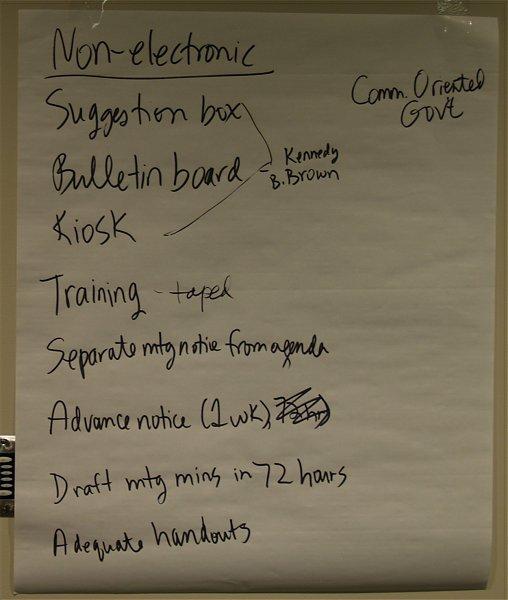 Non-electronic
Comm. Oriented
Gov't
Suggestion box
Bulletin board
Kennedy
B. Brown
Kiosk
Training - taped
Separate mtg notice from agenda
Advance notice (1 wk)
Draft mtg mins in 72 hours
Adequate handouts